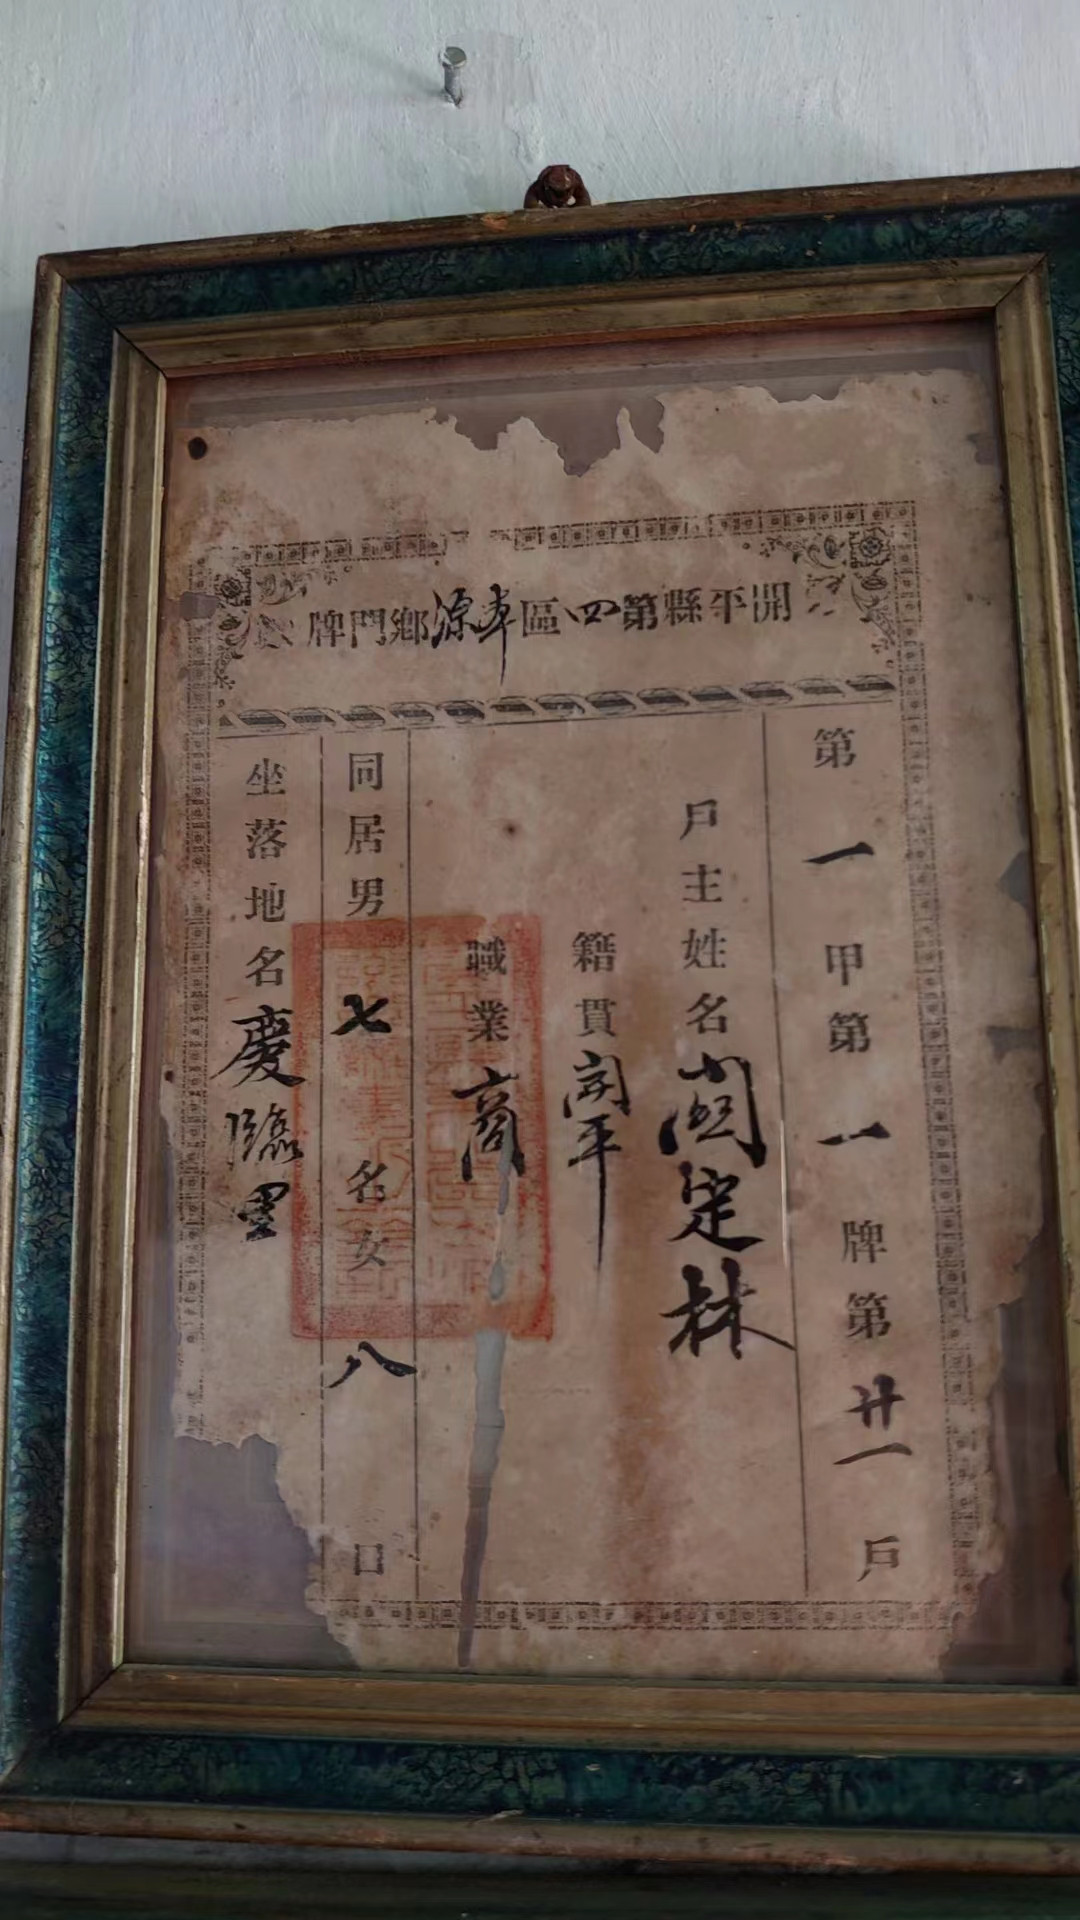 開平縣第四區源鄉門牌
第一甲第一牌第廿一戶
戶主姓名關定林
籍貫開平
職業商
同居男七名女八口
坐落地名慶臨里